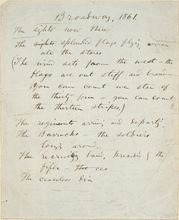 Broadway, 1861.
The sights now there
The sights splendid flags flying over
all the stores
(The wind sets from the west – the
flags are out stiff and broad –
you can count every star of
the thirty four – you can count
the thirteen stripes)
The regiments arriving and departing
The Barracks – the soldiers
lounging around,
The recruiting band, preceded by the
fifer –
The ceaseless din